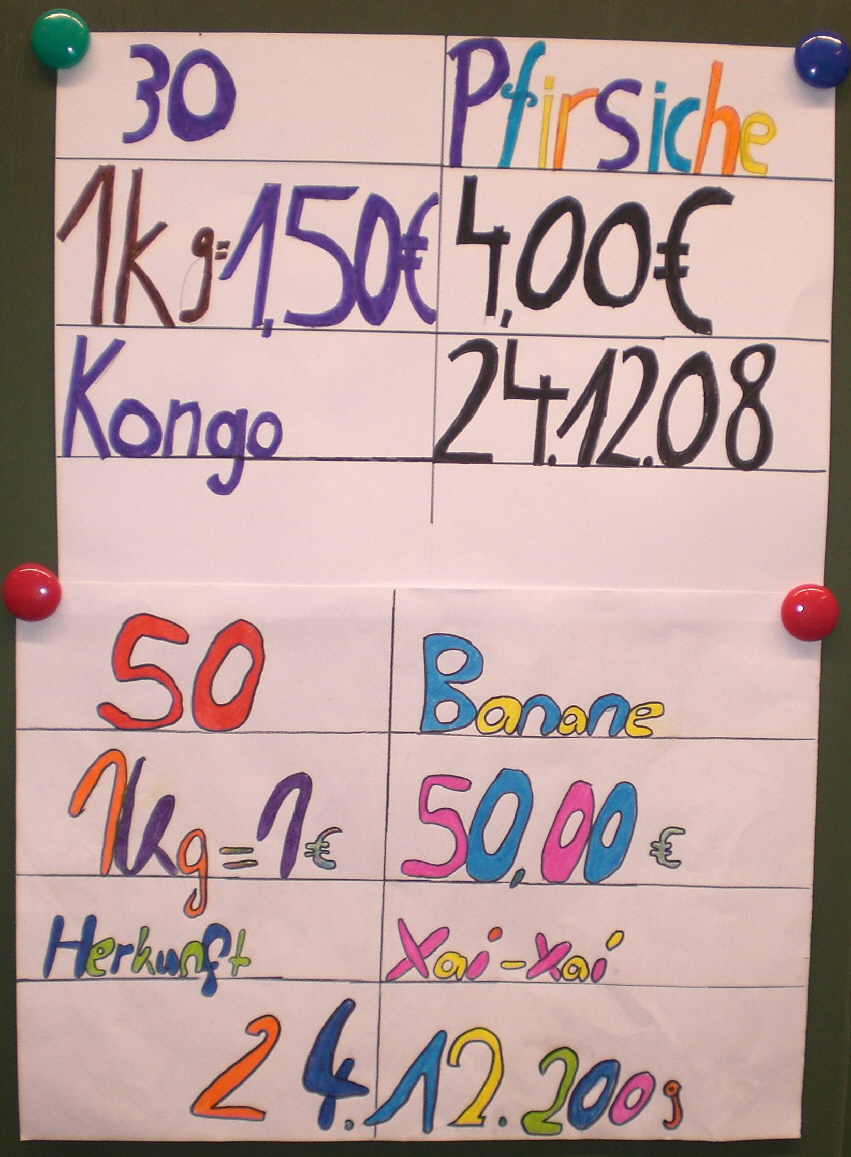 30 Pfirsiche
1kg=1,50€ 4,00€
Kongo 24.12.08
50 Banane
1kg=1€ 50,00€
Herkunft Xai-Xai
24.12.2009